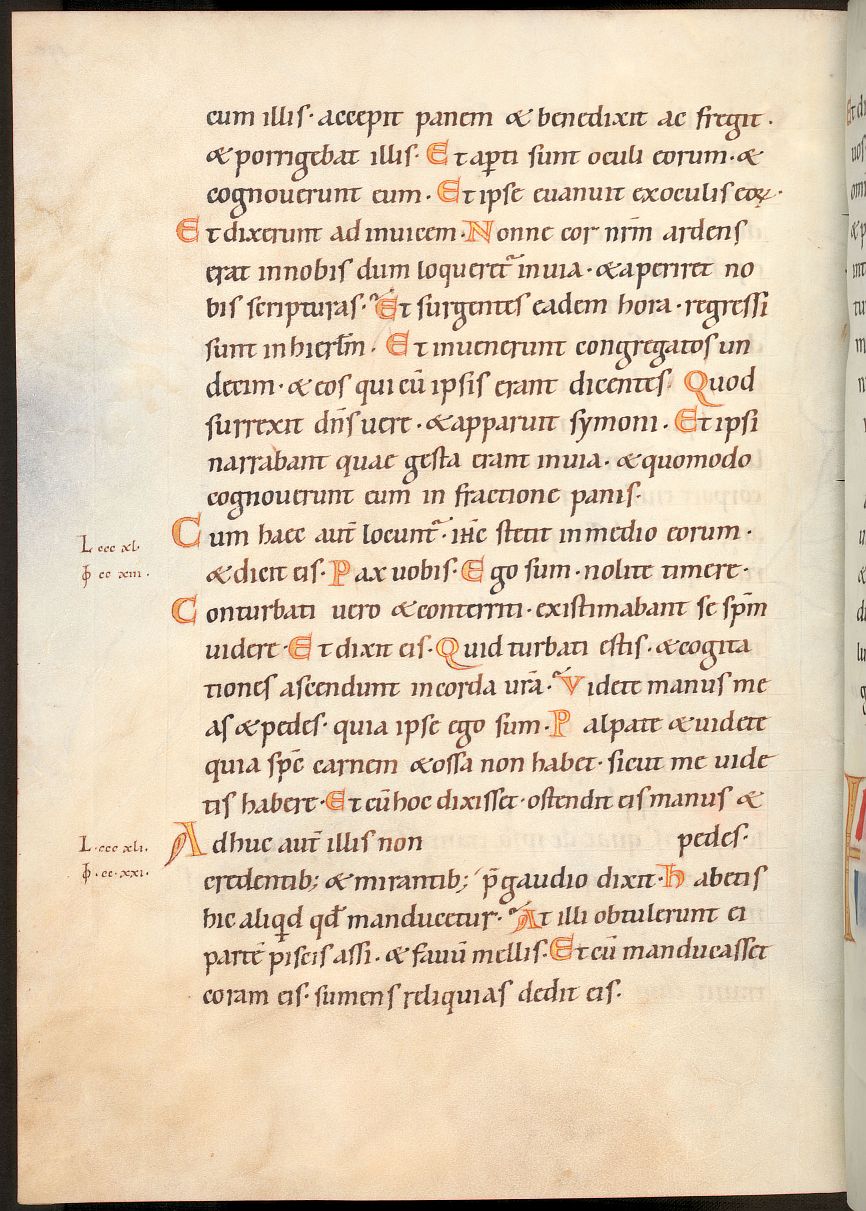 cum illis· accepit panem & benedixit ac fregit·
& porrigebat illis· Et apti sunt oculi eorum·&
cognouerunt eum· Et ipse euanuit exoculis eoꝝ·
Et dixerunt ad inuicem· Nonne cor nr̄m ardens
erat innobis dum loqueret᷑ inuia·&aperiret no
bis scripturas· Et surgentes eadem hora·regressi
sunt inhierl̄m· Et inuenerunt congregatos un
decim·& eos qui cū ipsis erant dicentes· Quod
surrexit dn̄s uere·&apparuit symoni· Et ipsi
narrabant quae gesta erant inuia·&quomodo
cognouerunt eum in fractione panis·
Cum haec aut̄ locunt᷑· ih̄c stetit inmedio eorum·
L ccc xl·
ꝑ cc xiii·
&dicit eis· Pax uobis· Ego sum·nolite timere·
Conturbati uero &conterriti·existimabant se sp̄m
uidere· Et dixit eis· Quid turbati estis·&cogita
tiones ascendunt incorda ur̄a· Videte manus me
as &pedes·quia ipse ego sum· Palpate &uidete
quia sp̄c carnem &ossa non habet·sicut me uide
tis habere· Et cū hoc dixisset·ostendit eis manus &
Adhuc aut̄ illis non pedes·
L·ccc xli·
ꝑ·cc·xxi·
credentib; &mirantib; p̄gaudio dixit· Habetis
hic aliqid qd̄ manducetur· At illi obtulerunt ei
partē piscis assi·& fauū mellis· Et cū manducasset
coram eis·sumens reliquias dedit eis·